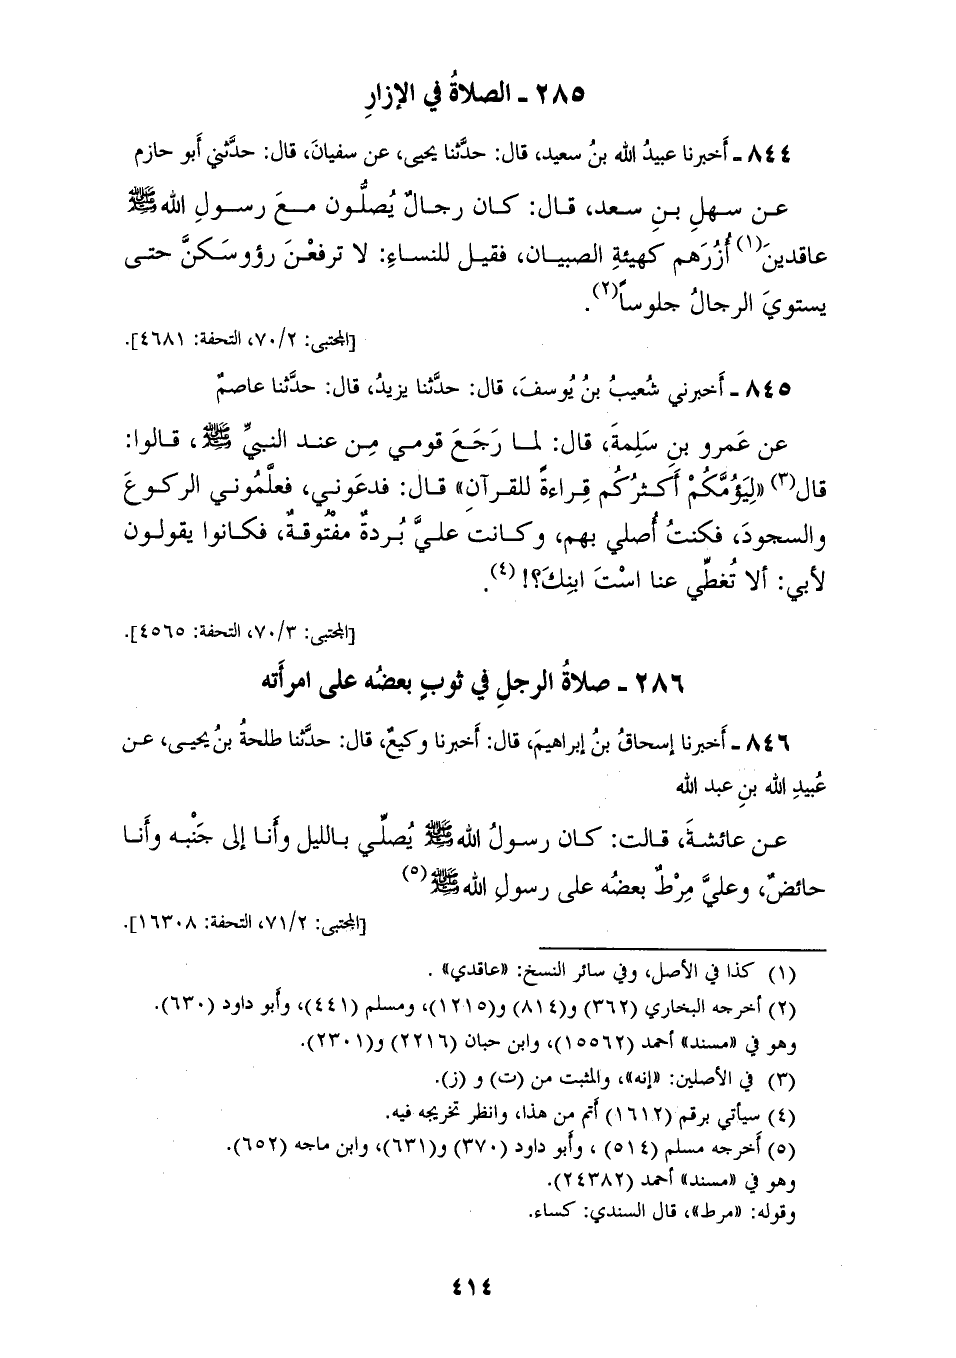 ٢٨٥ - الصلاةُ في الإزارِ
٨٤٤ - أَخبرنا عبيدُ الله بنُ سعيد، قال: حدَّثنا يحيى، عن سفيانَ، قال: حدَّثني أَبو حازم
عـن سـهلِ بـنِ سـعد، قـال: كـان رجـالٌ يُصلُّـون مـعَ رسـولِ الله ﷺ
عاقدينَ(١) أُزُرَهم كهيئةِ الصبيـان، فقيـل للنساءِ: لا ترفعْنَ رؤوسَكنَّ حتـى
يستويَ الرجالُ جلوساً(٢).
[المجتبى: ٧٠/٢، التحفة: ٤٦٨١].
٨٤٥ - أَخبرني شُعيبُ بنُ يُوسفَ، قال: حدَّثنا يزيدُ، قال: حدَّثنا عاصمٌ
عن عَمرو بنِ سَلِمةَ، قال: لمـا رَجَـعَ قومـي مِـن عنـد النبيِّ ﷺ، قـالوا:
قال(٣) «لِيَؤُمَّكُمْ أَكـثرُكُم قِـراءةً للقـرآنِ» قـال: فدعَوني، فعلَّمُوني الركـوعَ
والسجودَ، فكنتُ أُصلي بهم، وكـانت علـيَّ بُـردةٌ مفْتُوقـةٌ، فكـانوا يقولـون
لأبي: أَلا تُغطِّي عنا اسْتَ ابنِكَ؟! (٤).
[المجتبى: ٧٠/٣، التحفة: ٤٥٦٥].
٢٨٦ - صلاةُ الرجلِ في ثوبٍ بعضُه على امرأَته
٨٤٦ - أَخبرنا إسحاقُ بنُ إبراهيمَ، قال: أَخبرنا وكيعٌ، قال: حدَّثنا طلحةُ بنُ يحيـى، عـن
عُبيدِ الله بنِ عبد الله
عـن عائشـةَ، قـالت: كـان رسـولُ الله ﷺ يُصلِّـي بـالليل وأَنـا إلى جَنْبـه وأَنـا
حائضٌ، وعليَّ مِرْطٌ بعضُه على رسولِ الله ﷺ(٥)
[المجتبى: ٧١/٢، التحفة: ١٦٣٠٨].
(١) كذا في الأصل، وفي سائر النسخ: «عاقدي» .
(٢) أخرجه البخاري (٣٦٢) و(٨١٤) و(١٢١٥)، ومسلم (٤٤١)، وأَبو داود (٦٣٠).
وهو في «مسند» أحمد (١٥٥٦٢)، وابن حبان (٢٢١٦) و(٢٣٠١).
(٣) في الأصلين: «إنه»، والمثبت من (ت) و (ز).
(٤) سيأتي برقم (١٦١٢) أَتم من هذا، وانظر تخريجه فيه.
(٥) أَخرجه مسلم (٥١٤) ، وأَبو داود (٣٧٠) و(٦٣١)، وابن ماجه (٦٥٢).
وهو في «مسند» أحمد (٢٤٣٨٢).
وقوله: «مرط»، قال السندي: كساء.
٤١٤